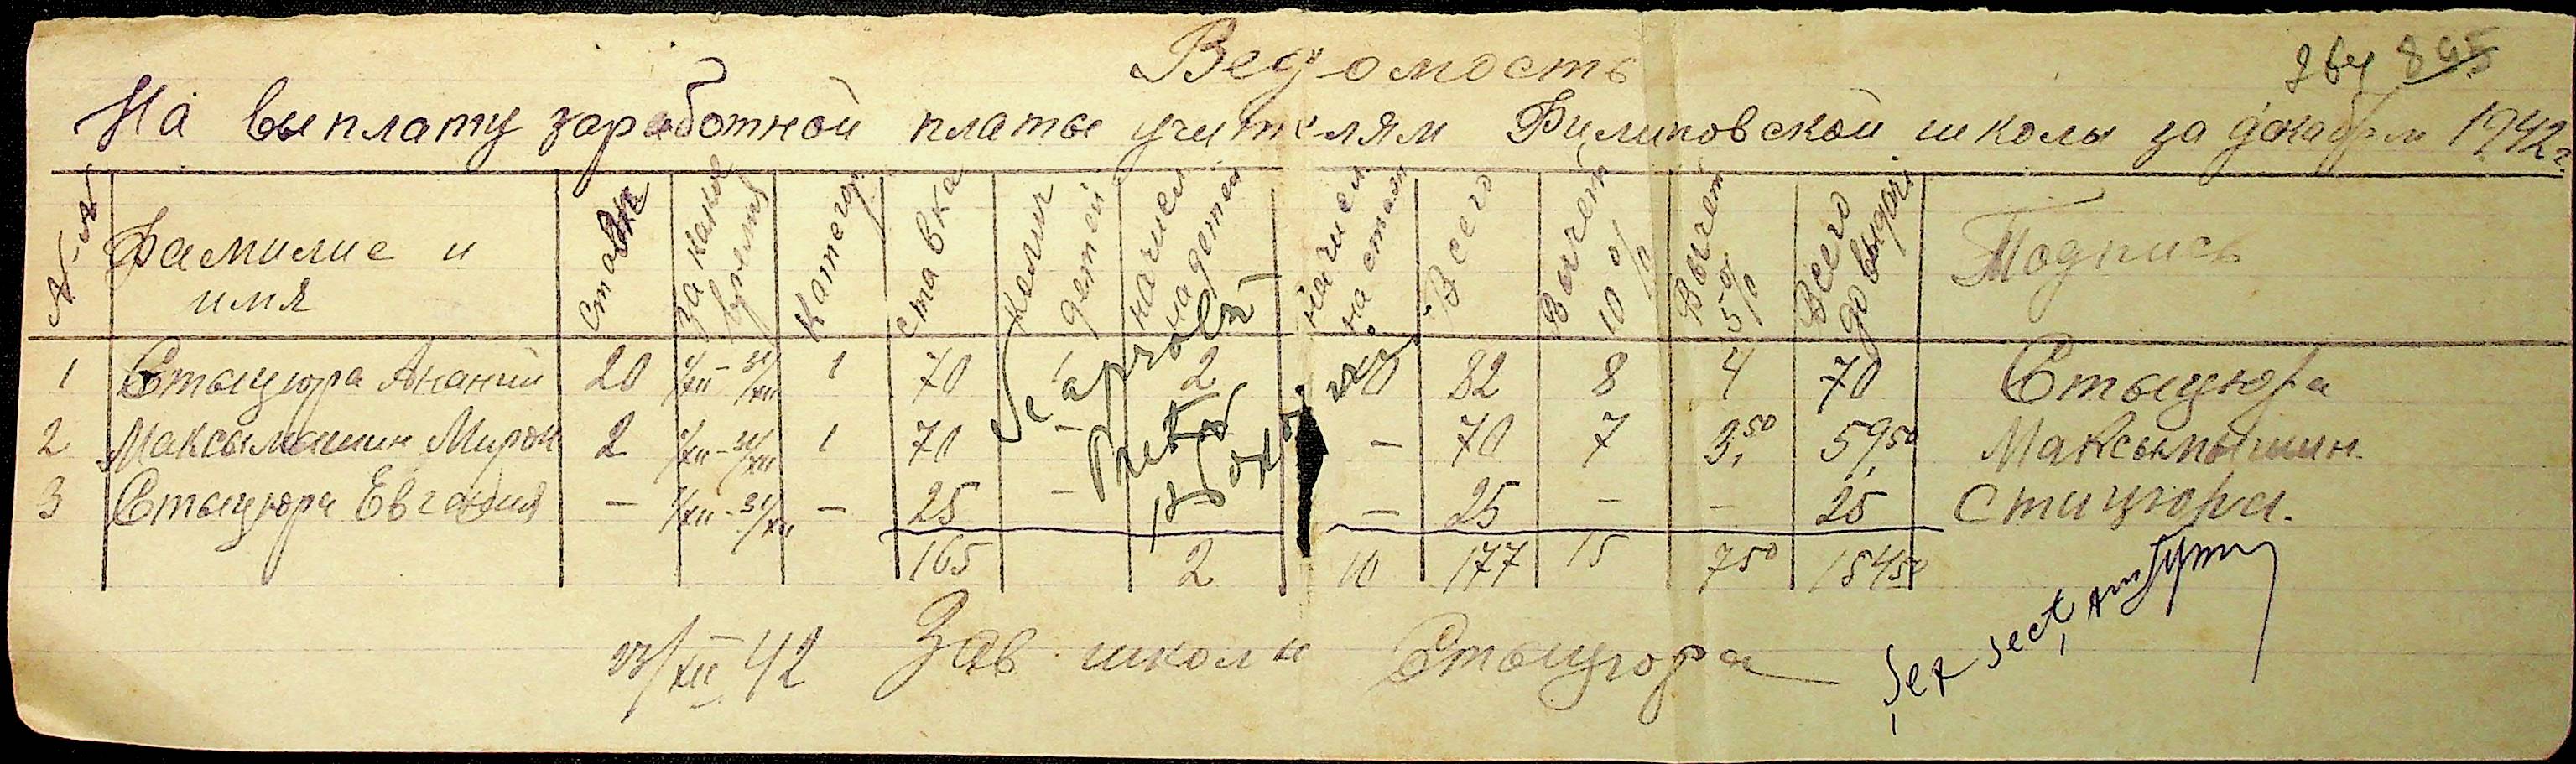 Ведомость
На выплату заработной платы учителям Филиповской школы за декабрь 1942 г
№-№ Фамилие и имя Ставк За какое время Категор ставка Колич детей начисл на детей начисл на стаж Всего Вычет 10 % Вычет 5% Всего до выдачи Подпись
1 Стыцюра Ананий 20 1/XII - 31/XII 1 70 1 2 10 82 8 4 70 Стыцюра
2 Максымышин Мирон 2 1/XII - 31/XII 1 70 - - - 70 7 3,50 59,50 Максымышин.
3 Стыцюра Евгения - 1/XII - 31/XII - 25 - - 25 - - 25 Стицюра.
165 2 10 177 15 7 50 154 50
Se aprobă
Pretor
23/XII 42 Зав школы Стыцюра
Șef sect,